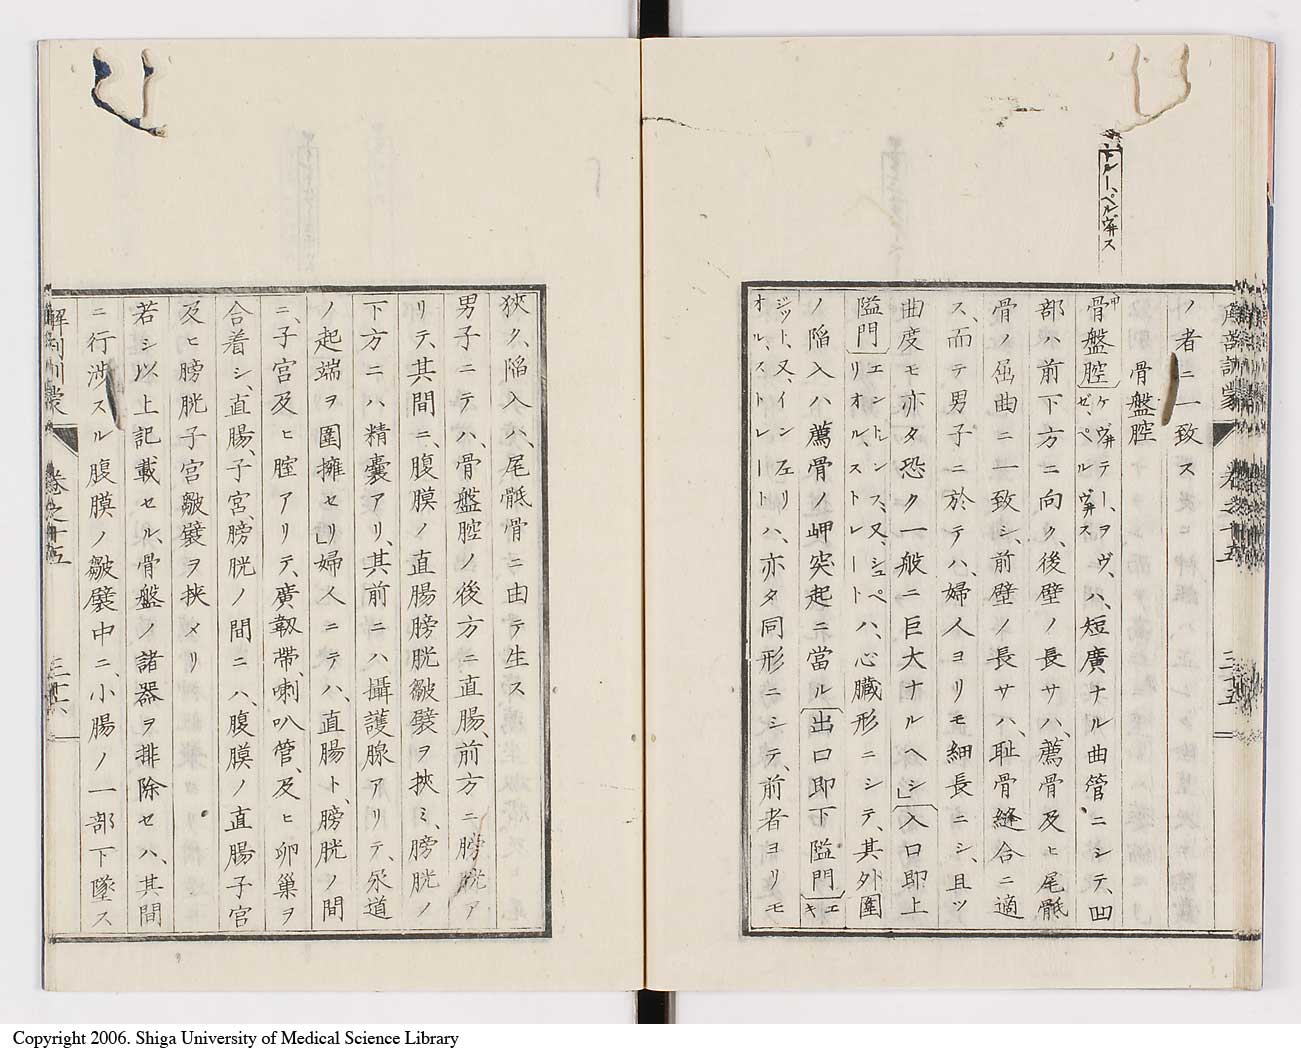 トルー、ペルヴ井ス
ノ者ニ一致ス
骨盤腔
骨盤腔 ケヴ井テー、ヲヴ、ゼ、ペルヴ井ス ハ、短廣ナル曲管ニシテ、凹
部ハ前下方ニ向ク、後壁ノ長サハ、薦骨及ヒ尾骶
骨ノ屈曲ニ一致シ、前壁ノ長サハ、恥骨縫合ニ適
ス、而テ男子ニ於テハ、婦人ヨリモ細長ニシ、且ツ
曲度モ亦タ恐ク一般ニ巨大ナルヘシ」入口即上
隘門 エントレンス、又、シュペリオル、ストレート ハ、心臓形ニシテ、其外圍
ノ陥入ハ薦骨ノ岬突起ニ當ル」出口即下隘門 エキ
ジット、又、インフェリオル、ストレート ハ、亦タ同形ニシテ、前者ヨリモ
解剖訓蒙 卷之十五 三十五
狹ク、陥入ハ、尾骶骨ニ由テ生ス
男子ニテハ、骨盤腔ノ後方ニ直腸、前方ニ膀胱ア
リテ、其間ニ、腹膜ノ直腸膀胱皺襞ヲ挾ミ、膀胱ノ
下方ニハ精囊アリ、其前ニハ攝護腺アリテ、尿道
ノ起端ヲ圍擁セリ」婦人ニテハ、直腸ト、膀胱ノ間
ニ、子宮及ヒ腟アリテ、廣靱帶、喇叭管、及ヒ卵巢ヲ
合着シ、直腸、子宮、膀胱ノ間ニハ、腹膜ノ直腸子宮
及ヒ膀胱子宮皺襞ヲ挾メリ
若シ以上記載セル、骨盤ノ諸器ヲ排除セハ、其間
ニ行渉スル腹膜ノ皺襞中ニ、小腸ノ一部下墜ス
解剖訓蒙 卷之十五 三十六
Copyright 2006. Shiga University of Medical Science Library